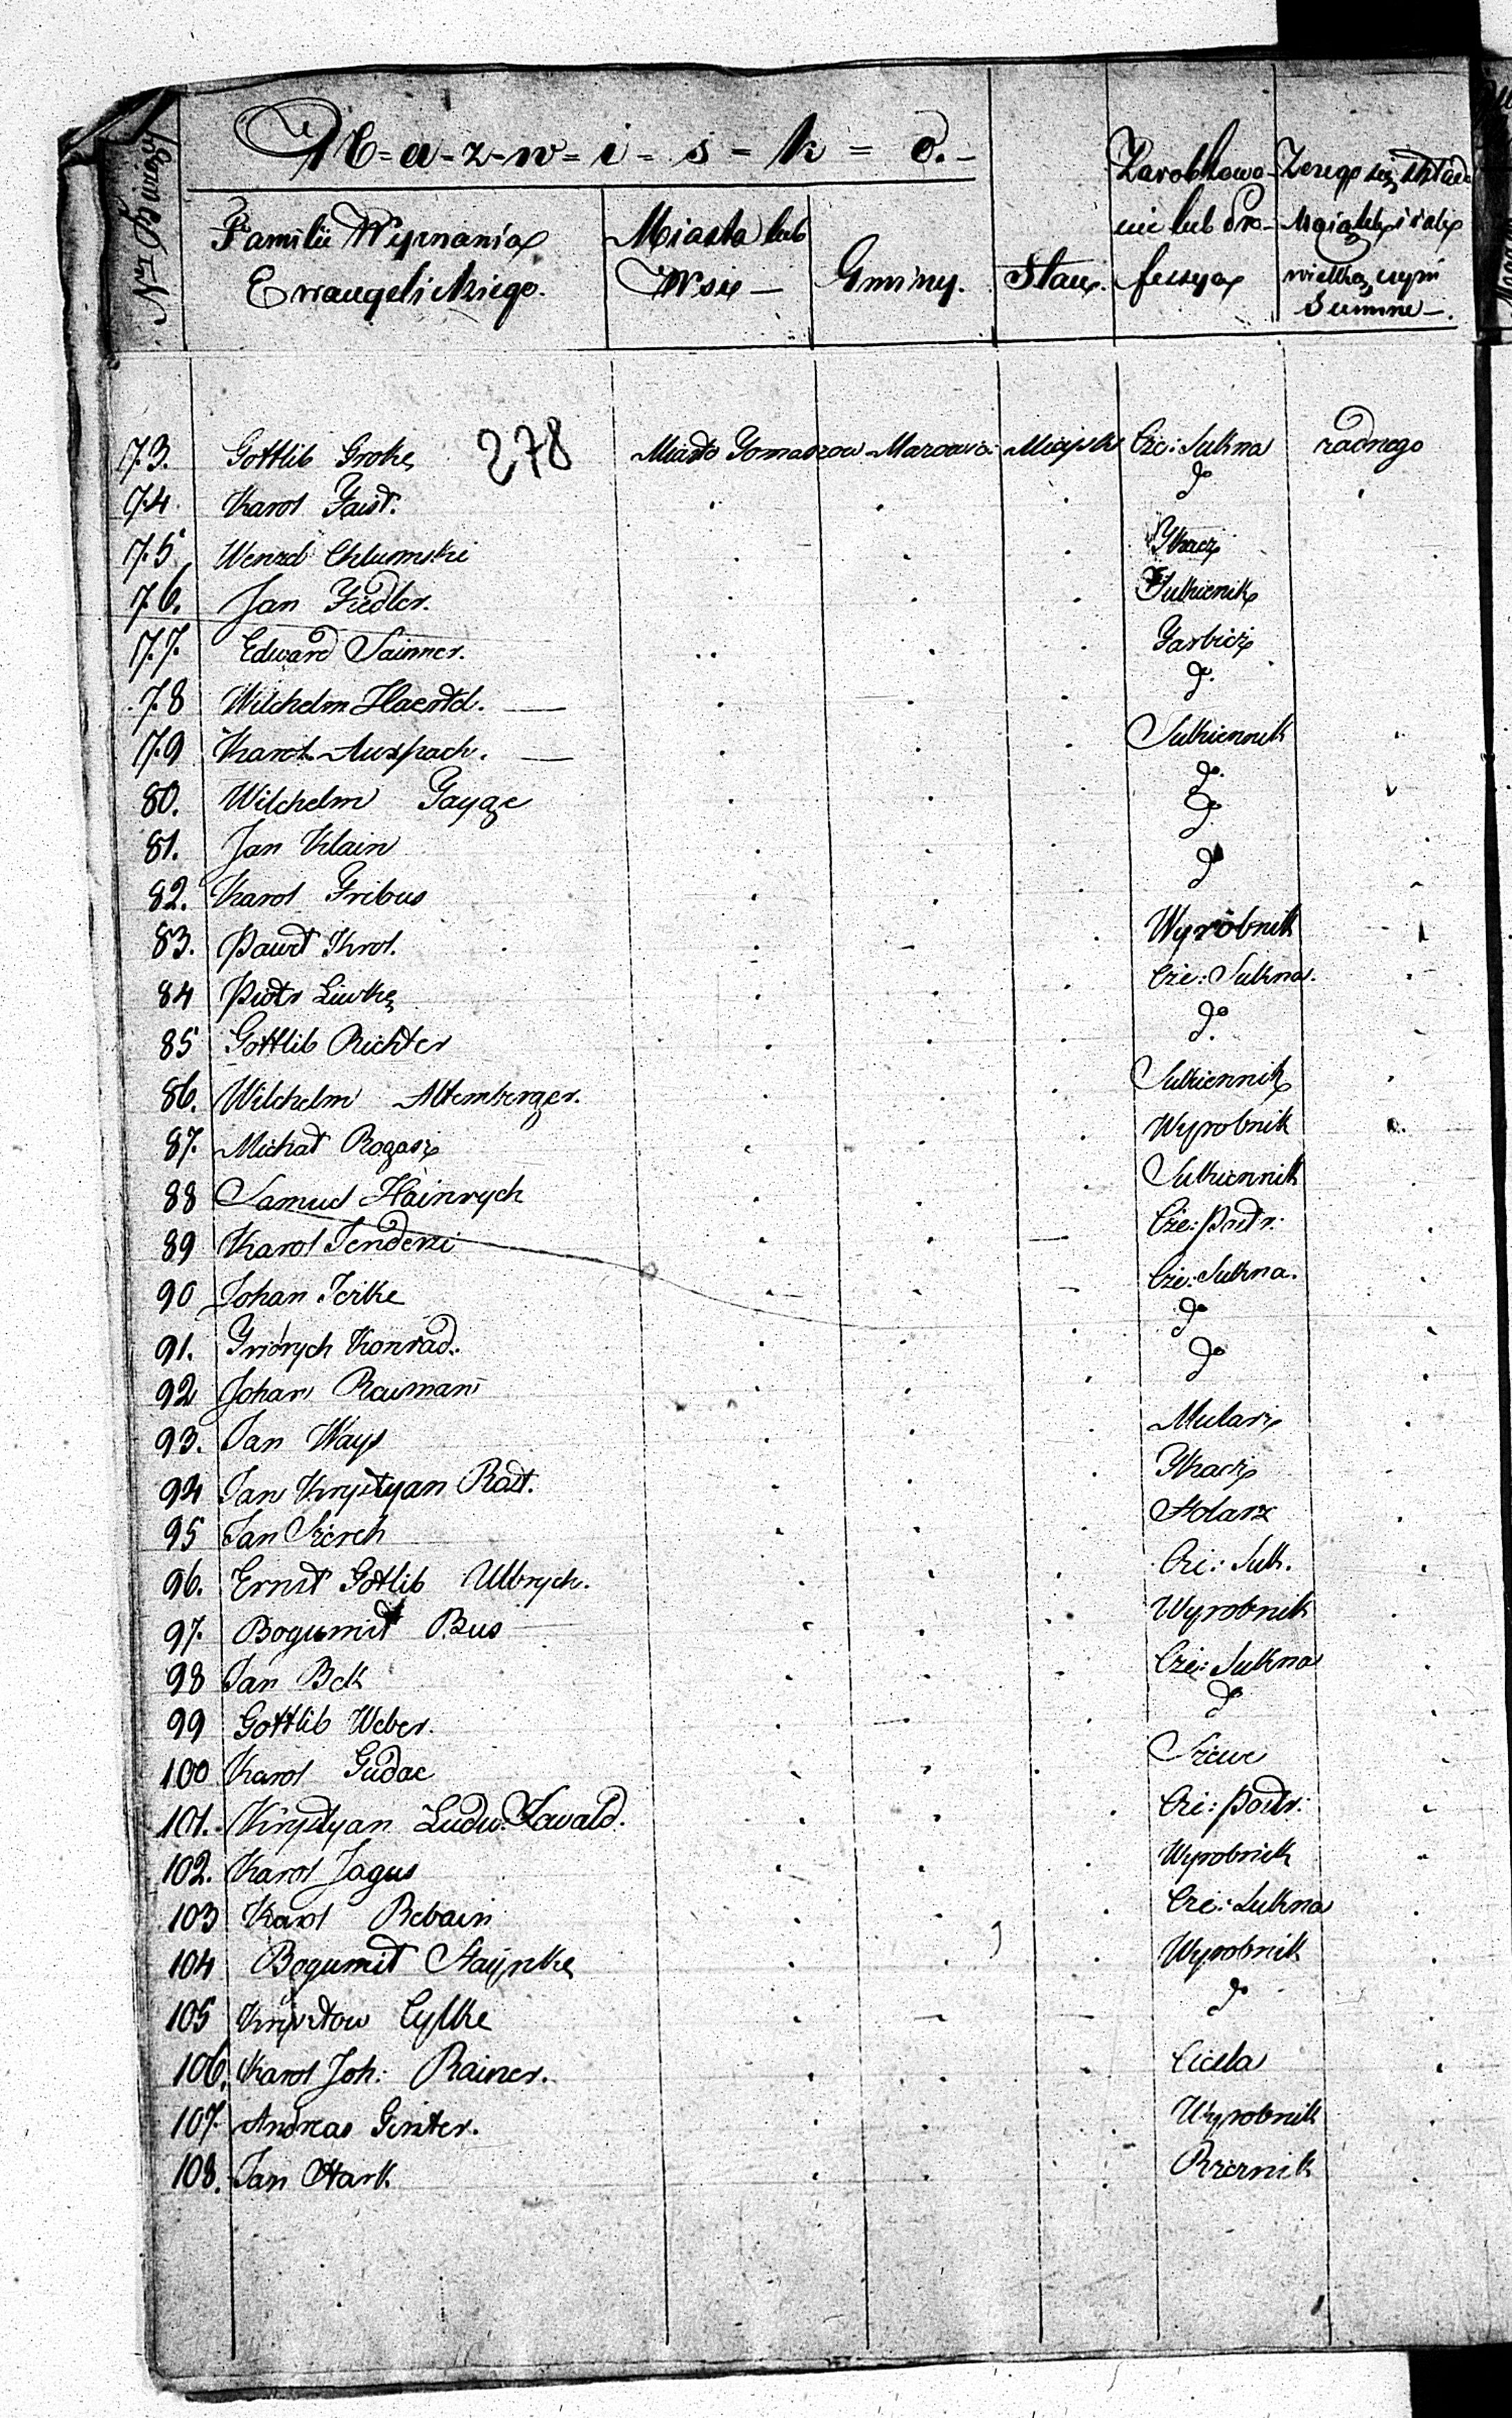 N-a-z-w-i-s-k-o.
Familii Wyznania
Ewangelickiego.
Miasta lub
Wsie
Gminy.
Stan
Zarobkowa-
nie lub Pro-
fessya
Czego się składa
Majątek i iak
wielka czyni
Summe.
278
73. Gottlib Groke Miasto Tomaszow Mazowie: Miejski Cze: Sukna żadnego
74. Karol Faist. do
75. Wenzel Chlumski Tkacz
76. Jan Fiedler. Sukiennik
77. Edward Sainner. Farbierz
78 Wilchelm Haertel. do
79 Karol Auspach. Sukiennik
80. Wilchelm Gayge do
81. Jan Klain do
82. Karol Fribus do
83. Paweł Krol. Wyrobnik
84 Piotr Liwke Cze: Sukna.
85 Gottlib Richter do
86. Wilchelm Altemberger. Sukiennik
87. Michał Rogasz Wyrobnik
88 Samuel Hainrych Sukiennik
89 Karol Tenderzi Cze: Postr:
90 Johan Jerke Cze: Sukna.
91. Fridrych Konrad. do
92 Johan Rauman do
93. Jan Ways Mularz
94 Jan Krystyan Rast. Tkacz
95 Jan Szerch Stolarz
96. Ernst Gotlib Ulbrych. Cze: Suk.
97. Bogumił Bus Wyrobnik
98 Jan Bek Cze: Sukna
99 Gottlib Weber. do
100 Karol Gudac Szewc
101. Krystyan Ludw: Kawald. Cze: Postr:
102. Karol Jagus Wyrobnik
103 Karol Bebain Cze: Sukna
104 Bogumił Staynke Wyrobnik
105 Krysztow Cylke do
106. Karol Joh: Rainer. Ciesla
107. Andreas Ginter. Wyrobnik
108. Jan Stark Rzeznik